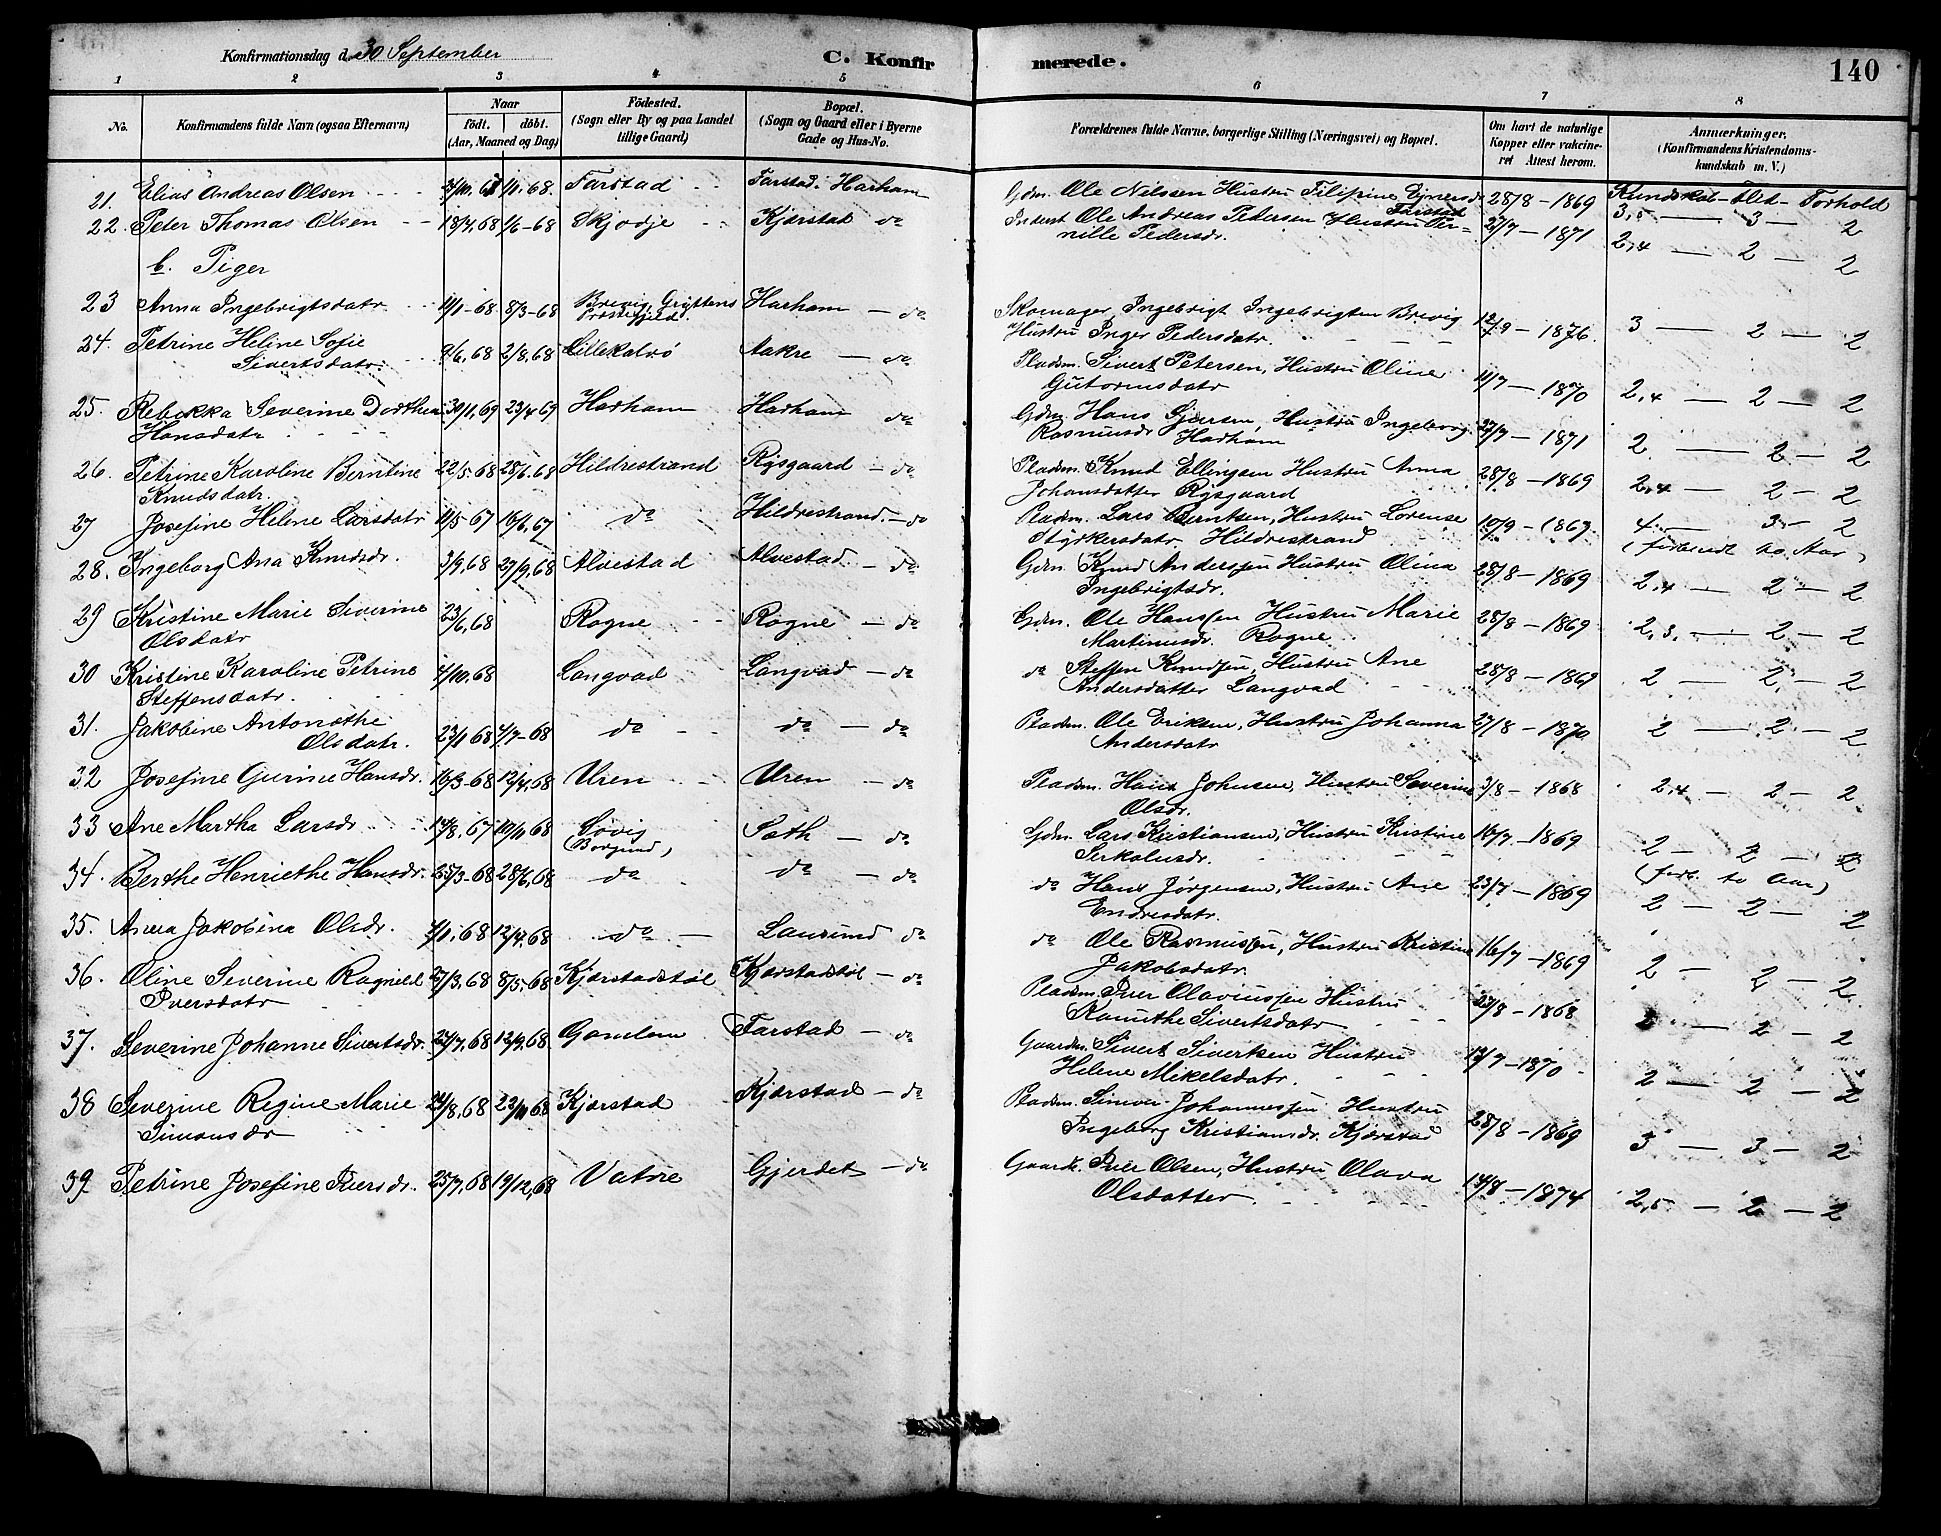 Konfirmationsdag d. 30 September
C. Konfirmerede.
140
1 2 3 4 5 6 7 8
No.
Konfirmandens fulde Navn (ogsaa Efternavn)
Naar
födt. döbt.
(Aar, Maaned og Dag)
Födested.
(Sogn eller By og paa Landet
tillige Gaard)
Bopæl.
(Sogn og Gaard eller i Byerne
Gade og Hus-No.
Forældrenes fulde Navne, borgerlige Stilling (Næringsvei) og Bopæl.
Om havt de naturlige
Kopper eller vakcine-
ret Attest herom.
Anmærkninger.
(Konfirmandens Kristendoms-
kundskab m. V.)
Kundskab - Flid - Forhold
21. Elias Andreas Olsen Farstad Farstad Harham Gdm. Ole Nilssen Hustru Filipine 28/8 - 1869 3,5 - 3 - 2
Farstad
22. Peter Thomas Olsen 18/4,68 1/6-68 Skjodje Kjærstad do Ole Andreas Pedersen Hustru Per- 27/7 - 1871 2,4 - 2 - 2
nille Pedersdr.
b. Piger
23 Anna Ingebrigtsdatr 11/1-68 8/3-68 Brevig, Gryttens Harham - do Skomager Ingebrigt Ingebrigtsen Brevig 12/9 - 1876. 3 - 2 - 2
Præstegjeld. Hustru Inger Pedersdatr.
24. Petrine Heline Sofie 9/6,68 2/8,68 Lillekalvø Aakre - do Pladsm. Sivert Petersen, Hustru Oline 11/7 - 1870 2,4 - 2 - 2
Sivertsdatr. Gutormsdatr
25. Rebekka Severine Dorthea 30/1,69 23/4,69 Harham Harham do Gdm. Hans Hustru Ingeborg 27/7 - 1871 2 - 2 - 2
Hansdatr Rasmusdr Harham
26. Petrine Karoline Berntine 22/5.68 28/6.68 Hildrestrand Rysgaard - do Pladsm. Knud Ellingsen Hustru Anna 28/8 - 1869 2,4 - 2 - 2
Knudsdatr. Johansdatter Rysgaard
27 Josefine Helene Larsdatr 11/5 67 16/6,67 do Hildrestrand - do Pladsm. Lars Berntsen, Hustru Lorense 19/9 - 1869. 4 - 3 - 2
Styrkersdatr. Hildrestrand (forberedt to Aar)
28. Ingeborg Ana Knudsdr. 3/9,68 27/9,68 Alvestad Alvestad - do Gdm. Knud Anderssen Hustru Olina 28/8 - 1869 2,4 - 2 - 2
Ingebrigtsdr.
29 Kristine Marie Severine 23/6,68 Rogne Rogne - do Gdm. Ole Hanssen Hustru Marie 28/8 - 1869 2,3. - 2 - 2
Olsdatr Martinusdr. Rogne
30 Kristine Karoline Petrine 4/10.68 Langvad Langvad - do do Steffen Knudsen, Hustru Ane 28/8 - 1869 2 - 2 - 2
Steffensdatr. Andersdatter Langvad
31. Jakobine Antonethe 23/1 68 4/7-68 do do - do Pladsm. Ole Eriksen, Hustru Johanna 27/8 - 1870 2 - 2 - 2
Olsdatr. Andersdatr
32 Josefine Gurine Hansdr. 16/3-68 12/4,68 Uren Uren - do Pladsm. Hans Johnsen, Hustru Severine 3/8 - 1868 2,4 - 2 - 2
Olsdr.
33 Ane Martha Larsdr 67 68 Søvig Sæth - do Gdm. Lars Kristiansen, Hustru Kristine 16/7 - 1869 2 - 2 - 2
(Borgund) (forb. to Aar)
34. Berthe Henriethe Hansdr. 25/3-68 28/6,68 do do - do do Hans Jørgensen, Hustru Ane 23/7 - 1869 2 - 2 - 2
Endresdatr.
35. Anna Jakobina Olsdr. 68 12/4,68 do Longund do do Ole Rasmussen, Hustru Kristine 16/7 - 1869 2 - 2 - 2
Jakobsdatr.
36. Oline Severine Ragnild 27/3,68 8/5-68 Kjærstadstøl Kjærstadstøl - do Pladsm. Iver Olaviussen Hustru 27/8 - 1868 2 - 2 - 2
Iversdatr Sivertsdatr
37. Severine Johanne Sivertsdr. 68 12/9,68 Gamlem Farstad - do Gaardm. Sivert Sivertsen Hustru 12/7 - 1870 2 - 2 - 2
Helene Mikelsdatr.
38 Severine Regine Marie 68 68 Kjærstad Kjærstad - do Pladsm. Simon Johannessen Hustru 28/8 - 1869 3 - 3 - 2
Simonsdr Ingeborg Kristiansdr. Kjærstad
39 Petrine Josefine Iversdr. 25/7,68 19/12,68 Vatne Gjerdet - do Iver Olsen, Hustru Olava 14/8 - 1874 2,5 - 2 - 2
Olsdatter